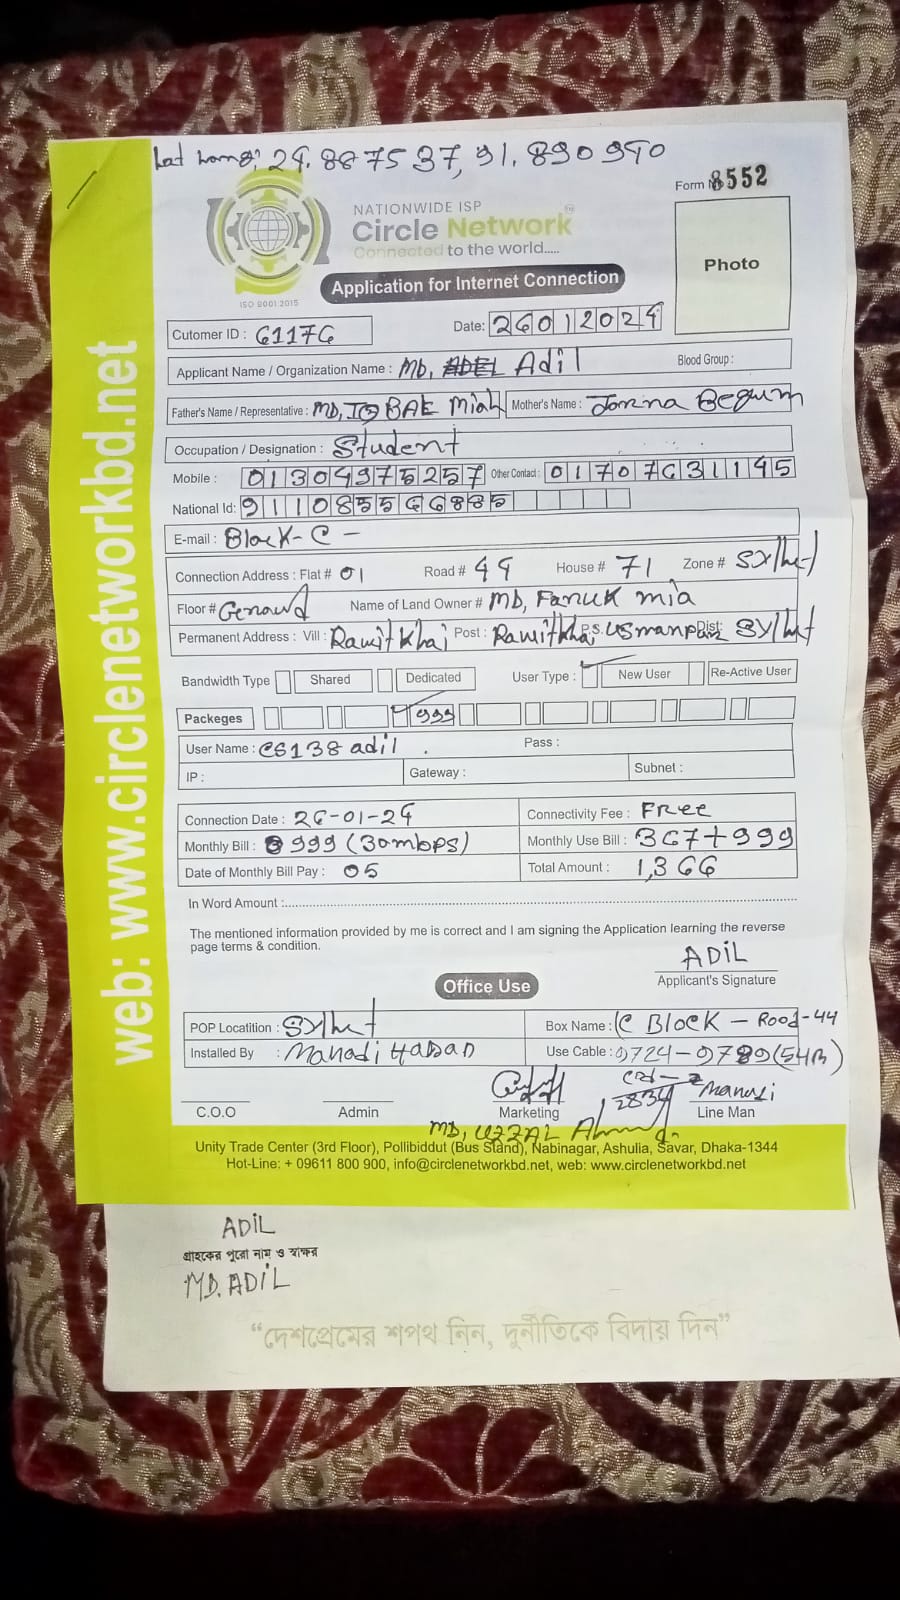 Lat Long; 24.887537, 91.890940
Form No 8552
NATIONWIDE ISP
Circle Network
Connected to the world.....
ISO 9001:2015
Application for Internet Connection
Photo
Cutomer ID : 61176
Date: 26012024
Applicant Name / Organization Name : Md, Adil Blood Group :
Father's Name / Representative : MD, Miah Mother's Name : Jorna Begum
Occupation / Designation : Student
Mobile : 01304975257 Other Contact : 01707631145
National Id: 911085566885
E-mail : Block-C -
Connection Address : Flat # 01 Road # 44 House # 71 Zone # Sylhet
Floor # Genawd Name of Land Owner # MD, Faruk mia
Permanent Address : Vill : Rawitkhai Post : Rawitkhai P.S. Usmanpur Dist: Sylhet
Bandwidth Type Shared Dedicated User Type : New User Re-Active User
Packeges 999
User Name : CS138 adil . Pass :
IP : Gateway : Subnet :
Connection Date : 26-01-24 Connectivity Fee : FRee
Monthly Bill : 999 (30mbps) Monthly Use Bill : 367+999
Date of Monthly Bill Pay : 05 Total Amount : 1,366
In Word Amount :
The mentioned information provided by me is correct and I am signing the Application learning the reverse
page terms & condition.
ADIL
Applicant's Signature
Office Use
POP Locatition : Sylhet Box Name : C Block - Rood-44
Installed By : Mahadi Hasan Use Cable : 0724-0789(54M)
2834
C.O.O Admin Marketing Line Man
MD, UZZAL Ahmed.
Unity Trade Center (3rd Floor), Pollibiddut (Bus Stand), Nabinagar, Ashulia, Savar, Dhaka-1344
Hot-Line: + 09611 800 900, info@circlenetworkbd.net, web: www.circlenetworkbd.net
web: www.circlenetworkbd.net
ADIL
গ্রাহকের পুরো নাম ও স্বাক্ষর
MD. ADIL
“দেশপ্রেমের শপথ নিন, দুর্নীতিকে বিদায় দিন”